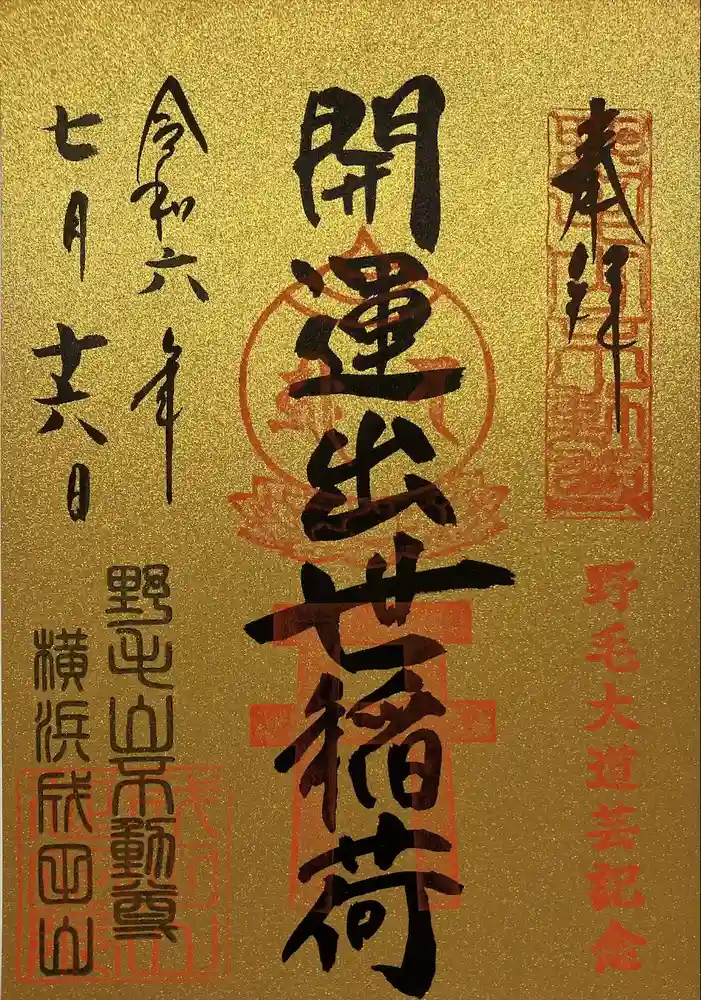 奉拝
野毛大道芸記念
開運出世稲荷
令和六年
七月廿八日
野毛山不動尊
横浜成田山